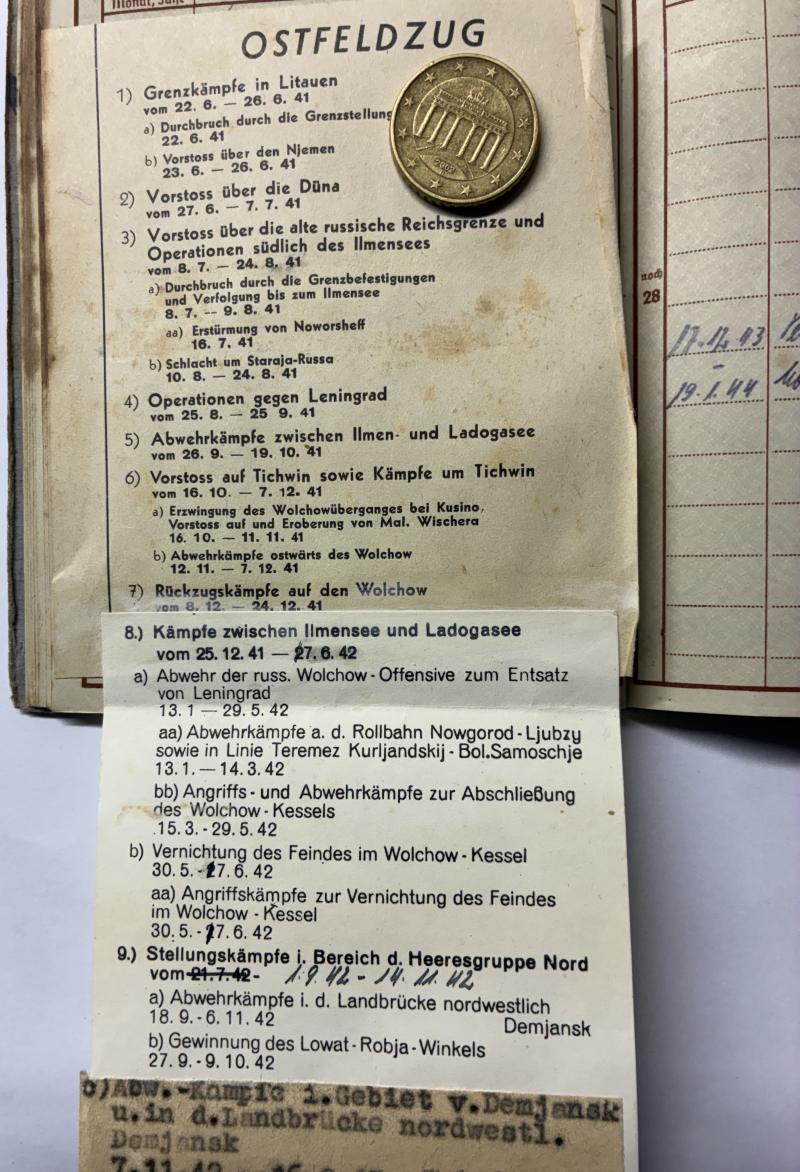 Monat, Jahr
OSTFELDZUG
1) Grenzkämpfe in Litauen
vom 22. 6. — 26. 6. 41
a) Durchbruch durch die Grenzstellung
22. 6. 41
b) Vorstoss über den Njemen
23. 6. — 26. 6. 41
2) Vorstoss über die Düna
vom 27. 6. — 7. 7. 41
3) Vorstoss über die alte russische Reichsgrenze und
Operationen südlich des Ilmensees
vom 8. 7. — 24. 8. 41
a) Durchbruch durch die Grenzbefestigungen
und Verfolgung bis zum Ilmensee
8. 7. -- 9. 8. 41
aa) Erstürmung von Noworsheff
16. 7. 41
b) Schlacht um Staraja-Russa
10. 8. — 24. 8. 41
4) Operationen gegen Leningrad
vom 25. 8. — 25 9. 41
5) Abwehrkämpfe zwischen Ilmen- und Ladogasee
vom 26. 9. — 19. 10. 41
6) Vorstoss auf Tichwin sowie Kämpfe um Tichwin
vom 16. 10. — 7. 12. 41
a) Erzwingung des Wolchowüberganges bei Kusino,
Vorstoss auf und Eroberung von Mal. Wischera
16. 10. — 11. 11. 41
b) Abwehrkämpfe ostwärts des Wolchow
12. 11. — 7. 12. 41
7) Rückzugskämpfe auf den Wolchow
vom 8. 12. — 24. 12. 41
8.) Kämpfe zwischen Ilmensee und Ladogasee
vom 25. 12. 41 — 27. 6. 42
a) Abwehr der russ. Wolchow-Offensive zum Entsatz
von Leningrad
13. 1 — 29. 5. 42
aa) Abwehrkämpfe a. d. Rollbahn Nowgorod-Ljubzy
sowie in Linie Teremez Kurljandskij-Bol.Samoschje
13. 1. — 14. 3. 42
bb) Angriffs- und Abwehrkämpfe zur Abschließung
des Wolchow-Kessels
15. 3. - 29. 5. 42
b) Vernichtung des Feindes im Wolchow-Kessel
30. 5. - 27. 6. 42
aa) Angriffskämpfe zur Vernichtung des Feindes
im Wolchow-Kessel
30. 5. - 27. 6. 42
9.) Stellungskämpfe i. Bereich d. Heeresgruppe Nord
vom 21.7.42 - 1.9.42 - 14.11.42
a) Abwehrkämpfe i. d. Landbrücke nordwestlich
18. 9. - 6. 11. 42 Demjansk
b) Gewinnung des Lowat-Robja-Winkels
27. 9. - 9. 10. 42
c) Abw.-Kämpfe i.Gebiet v.Demjansk
u.in d.Landbrücke nordwestl.
Demjansk
7.11.42
2002
noch
28
17.12.43
-
19.1.44